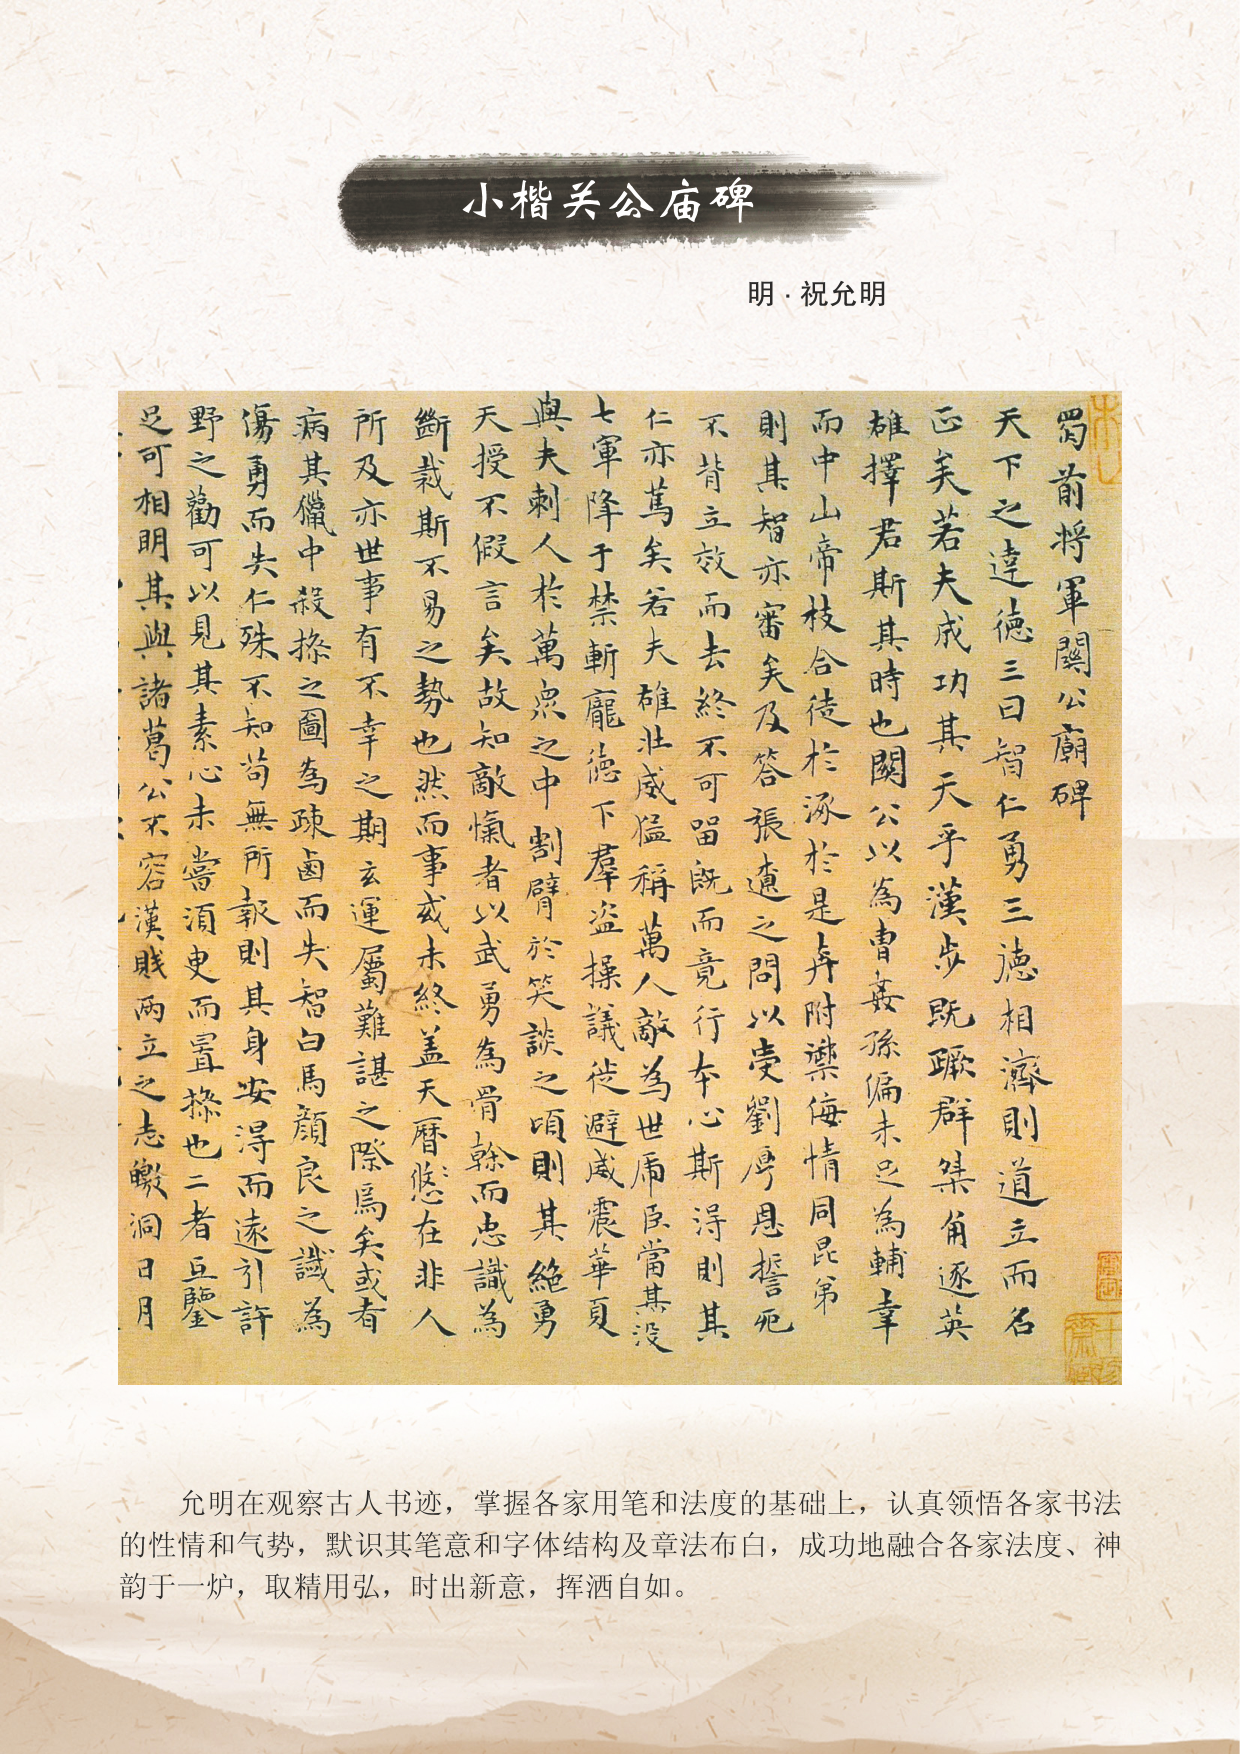 小楷关公庙碑
明·祝允明
蜀前将軍關公廟碑
天下之達德三曰智仁勇三德相濟則道立而名
正矣若夫成功其天乎漢步既蹶群桀角逐英
雄擇君斯其時也關公以為曹姦孫偏未足為輔幸
而中山帝枝合徒於涿於是奔附禦侮情同昆弟
則其智亦審矣及答張遼之問以受劉厚恩誓死
不背立效而去終不可留既而竟行本心斯得則其
仁亦篤矣若夫雄壯威猛稱萬人敵為世虎臣當其没
七軍降于禁斬龐德下羣盗操議徙避威震華夏
與夫刺人於萬衆之中割臂於笑談之頃則其絶勇
天授不假言矣故知敵愾者以武勇為骨榦而忠識為
斷裁斯不易之勢也然而事或未終盖天曆悠悠在非人
所及亦世事有不幸之期玄運屬難諶之際焉矣或者
病其獵中殺操之圖為疎鹵而失智白馬顔良之誠為
傷勇而失仁殊不知苟無所報則其身安得而遠引許
野之勸可以見其素心未嘗須臾而置操也二者互鑒
足可相明其與諸葛公不容漢賊兩立之志皦洞日月
允明在观察古人书迹，掌握各家用笔和法度的基础上，认真领悟各家书法
的性情和气势，默识其笔意和字体结构及章法布白，成功地融合各家法度、神
韵于一炉，取精用弘，时出新意，挥洒自如。